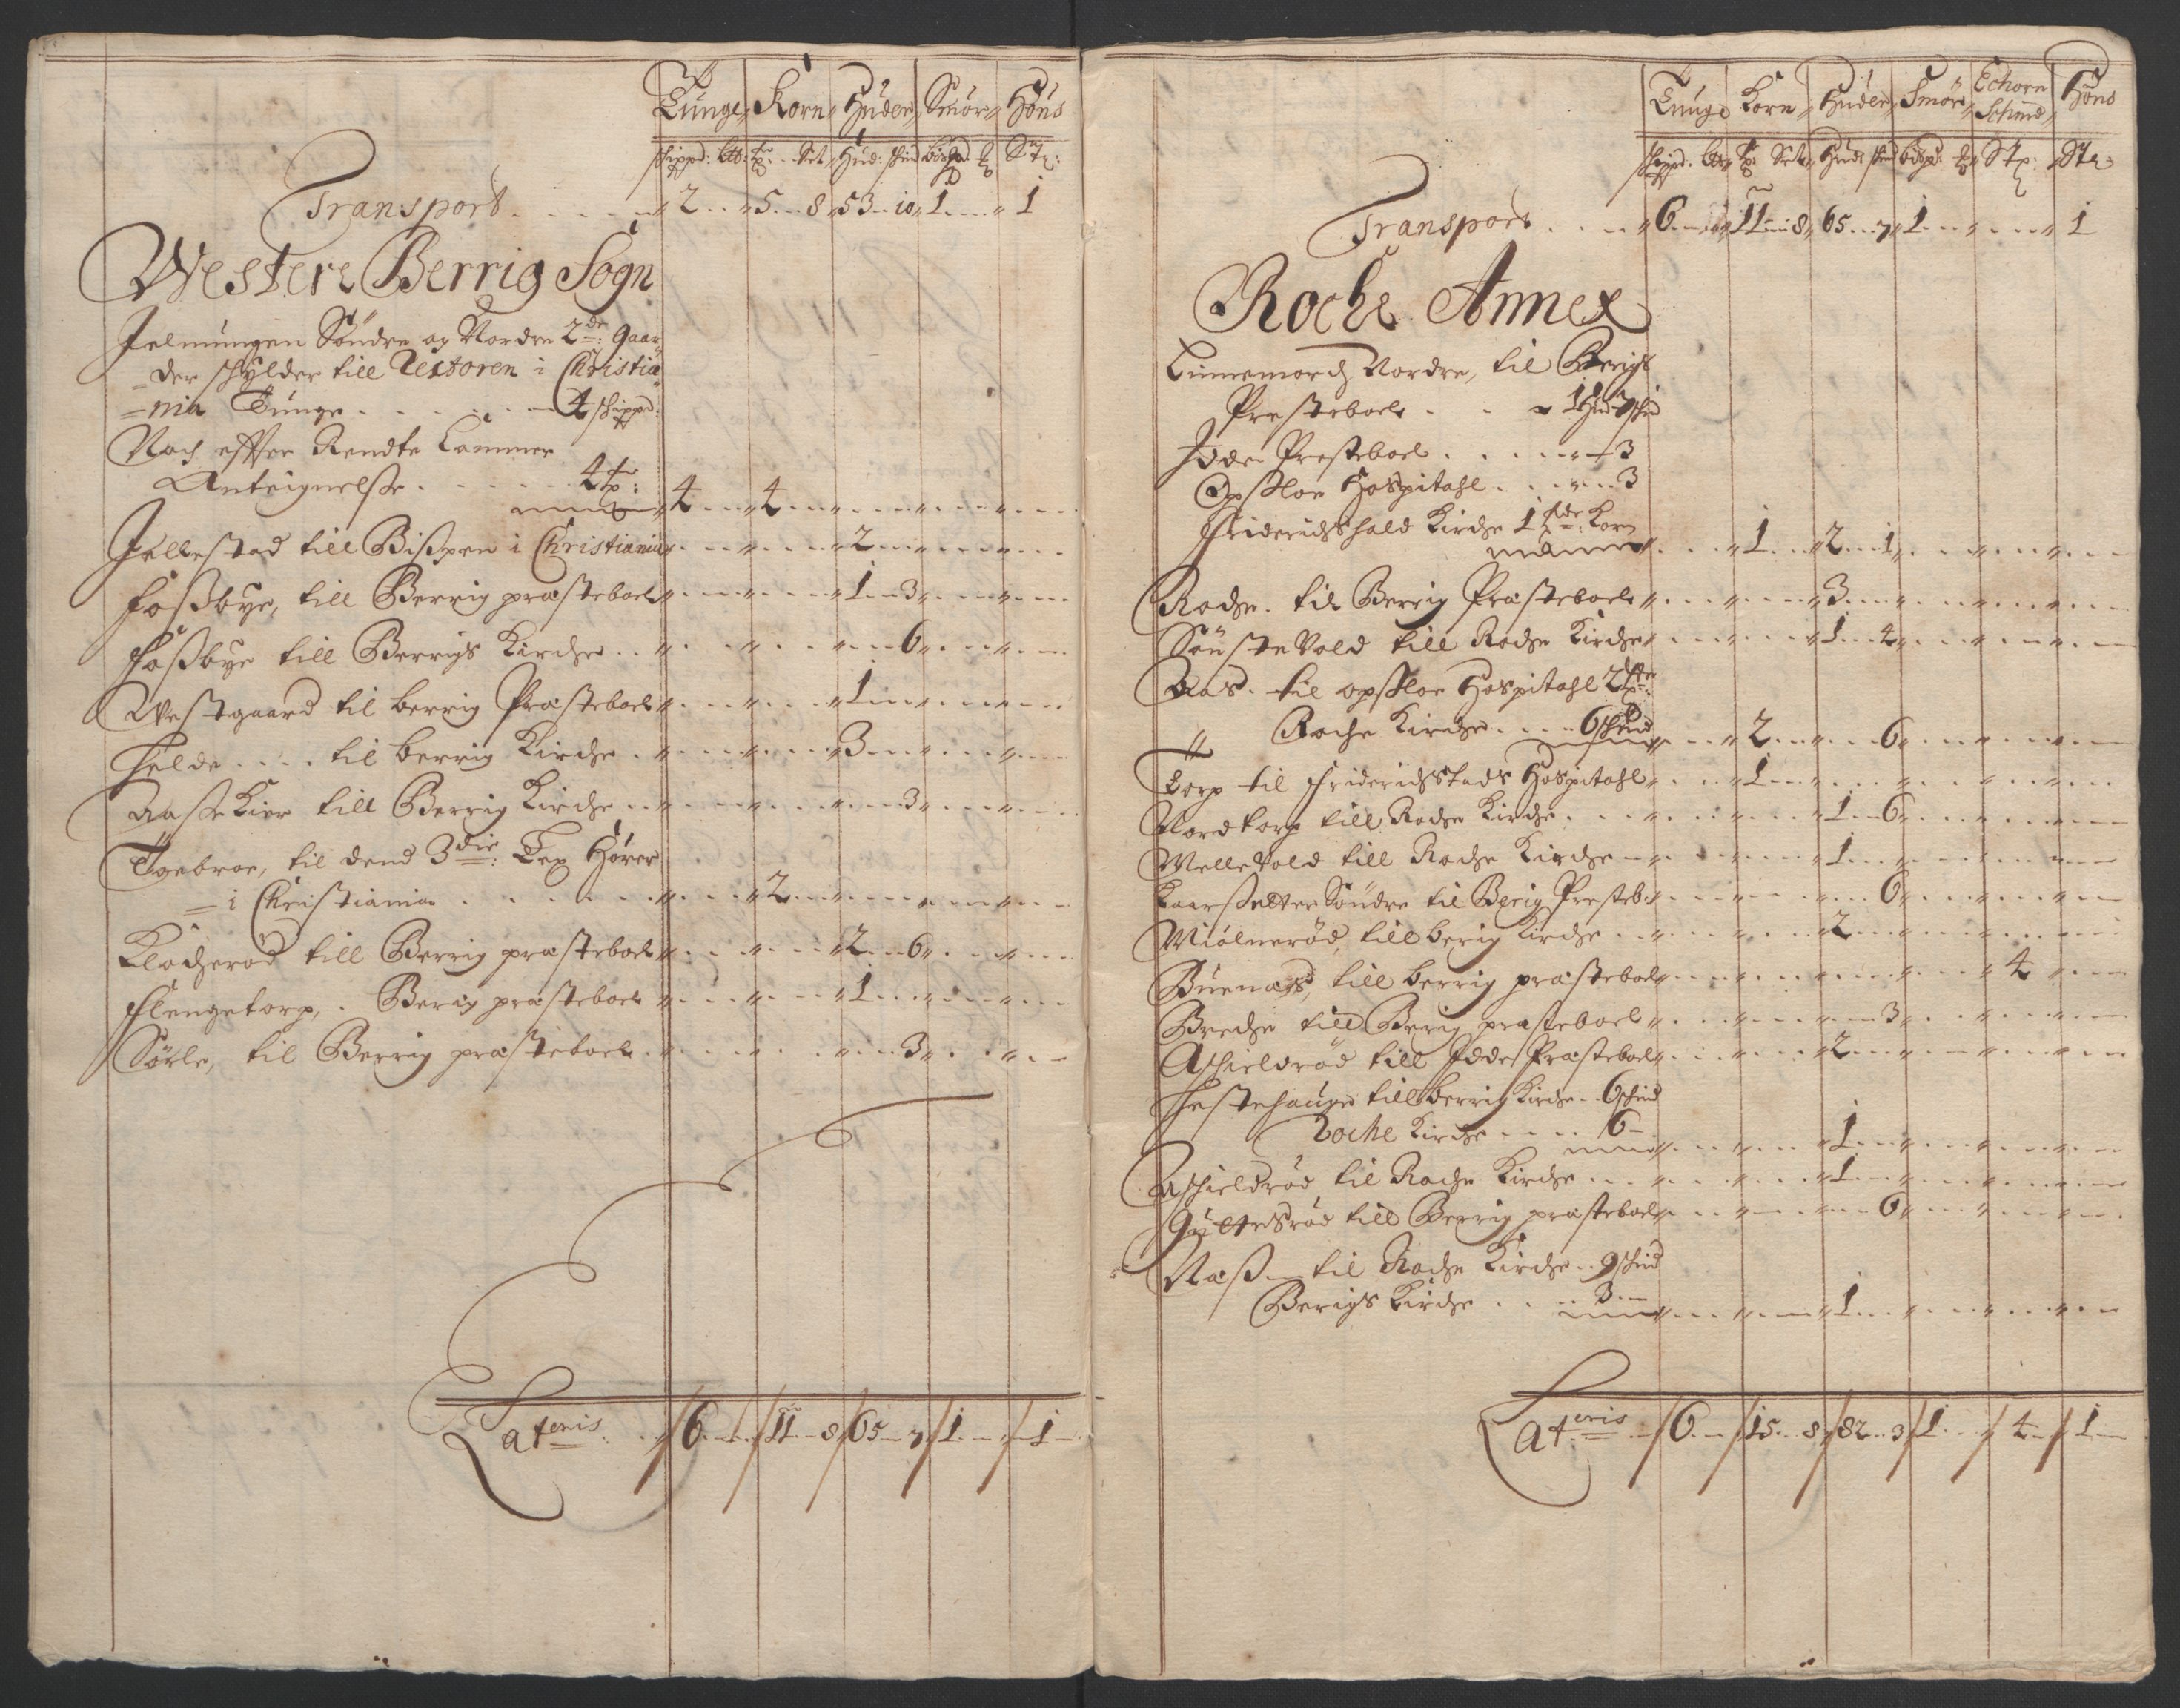 Tunge Korn Huder Smör Höns
schippd: Lb: tr: Set Hud: schind bispd: St:
Transport 2 5 8 53 10 1 1
Westere Berrig Sogn
Jelmungen Söndre og Nordre 2de: gaar
der schylder till Lectoren i Christia
nia Tunge 4 schippd:
Noch effter Rendte Cammer
Anteignelsse 4 tr:
4 4
Jellestad till Bispen i Christiania 2
Fossbye, till Berrig præsteboel 1 3
Fossbye till Berrigs Kirche 6
Westgaard til berrig Præsteboel 1
Helde til berrig Kirche 3
Aasse Kier till Berrig Kirche 3
Toebroe, til dend 3die: Lex Hörer
i Christiania 2
Klocherød till Berrig præsteboel 2 6
Flengetorp, Berrig præsteboel 1
Sörle, til Berrig præsteboel 3
Lateris 6 11 8 65 7 1 1
Tunge Korn Huder Smör Echorn Schind Höns
schippd: Lb: tr: Set Hud: schind bispd: St: St:
Transport 6 11 8 65 7 1 1
Roche Annex
Linnemorch Nordre, til Berigs
Presteboel 1 Hud 7 schind
Idde Presteboel 3
Opsloe Hospitahl 3
Friderichshald Kirche 1 fde: Korn
1 2 1
Roche til Berrig Præsteboel 3
Sönste Vold till Roche Kirche 1 4
Aas til opsloe Hospitahl 2 tr:
Roche Kirche 6 schind
2 6
Torp til Friderichstads Hospitahl 1
Nordtorp till Roche Kirche 1 6
Melle Vold till Roche Kirche 1
Kaarssetter Söndre til Berig Presteb: 6
Miölnerød, till berig Kirche 2
Buenæs, till berrig præsteboel 4
Breche till Berig præsteboel 3
Aschieldrød till Idde Præsteboel 2
Hestehaugen till berrig Kirche 6 schind
Roche Kirche 6
1
Aschieldrød til Roche Kirche 1
Gyltesrød till Berrig præsteboel 6
Næss til Roche Kirche 9 schind
Berigs Kirche 3
1
Lateris 6 15 8 82 3 1 4 1